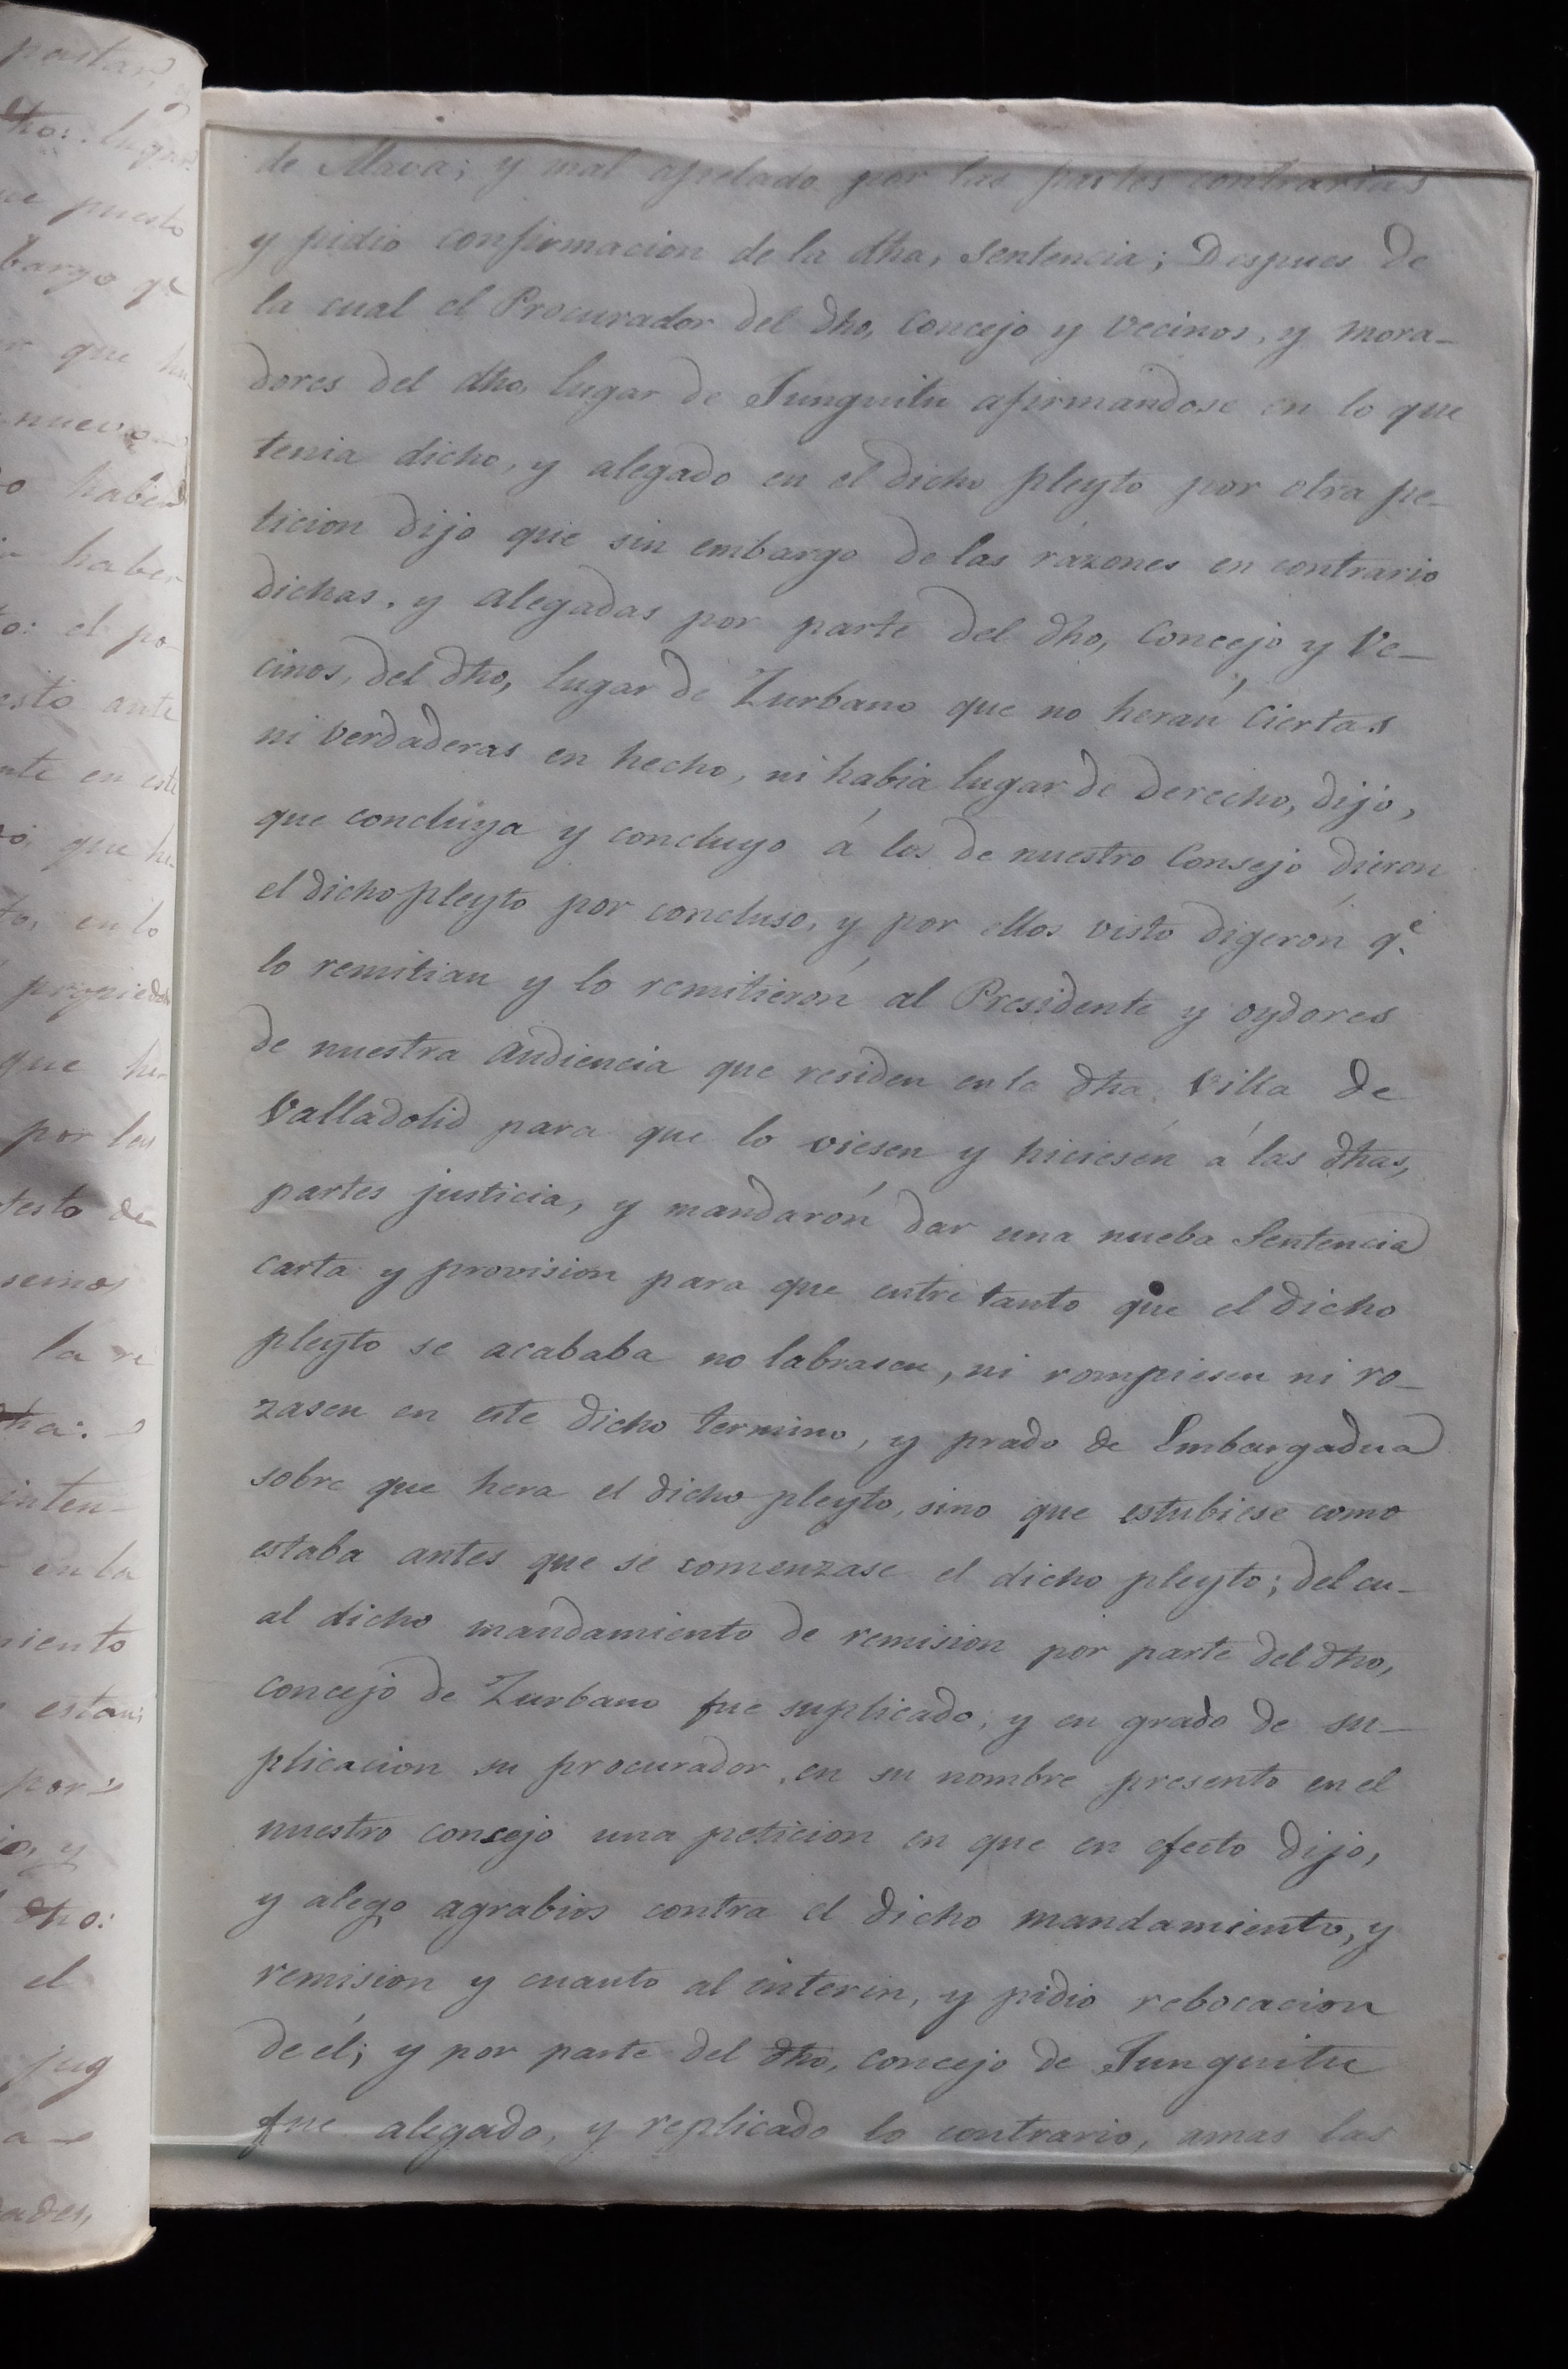 de Alava; y mal apelado por las partes contrarias
y pidio confirmacion de la dha, Sentencia; Despues de
la cual el Procurador del dho, Concejo y vecinos, y mora-
dores del dho, lugar de Junguitu afirmandose en lo que
tenia dicho, y alegado en el dicho pleyto por otra pe-
ticion dijo que sin embargo de las razones en contrario
dichas, y alegadas por parte del dho, Concejo y Ve-
cinos, del dho, lugar de Zurbano que no herán Ciertas
ni verdaderas en hecho, ni habia lugar de derecho, dijo,
que concluya y concluyo á los de nuestro Consejo dieron
el dicho pleyto por concluso, y por ellos visto digerón q.e
lo remitian y lo remitierón al Presidente y oydores
de nuestra audiencia que residen en la dha, Villa de
Valladolid para que lo viesen y hiciesén á las dhas,
partes justicia, y mandarón dar una nueba Sentencia
carta y provision para que entre tanto que el dicho
pleyto se acababa no labrasen, ni rompiesen ni ro-
zasen en este dicho termino, y prado de Embargadua
sobre que hera el dicho pleyto, sino que estubiese como
estaba antes que se comenzase el dicho pleyto; del cu-
al dicho mandamiento de remision por parte del dho,
concejo de Zurbano fue suplicado; y en grado de su-
plicacion su procurador, en su nombre presento en el
nuestro consejo una peticion en que en efecto dijo,
y alego agrabios contra el dicho mandamiento, y
remision y cuanto al interin, y pidio rebocacion
de él; y por parte del dho, concejo de Junguitu
fue alegado, y replicado lo contrario, amas las